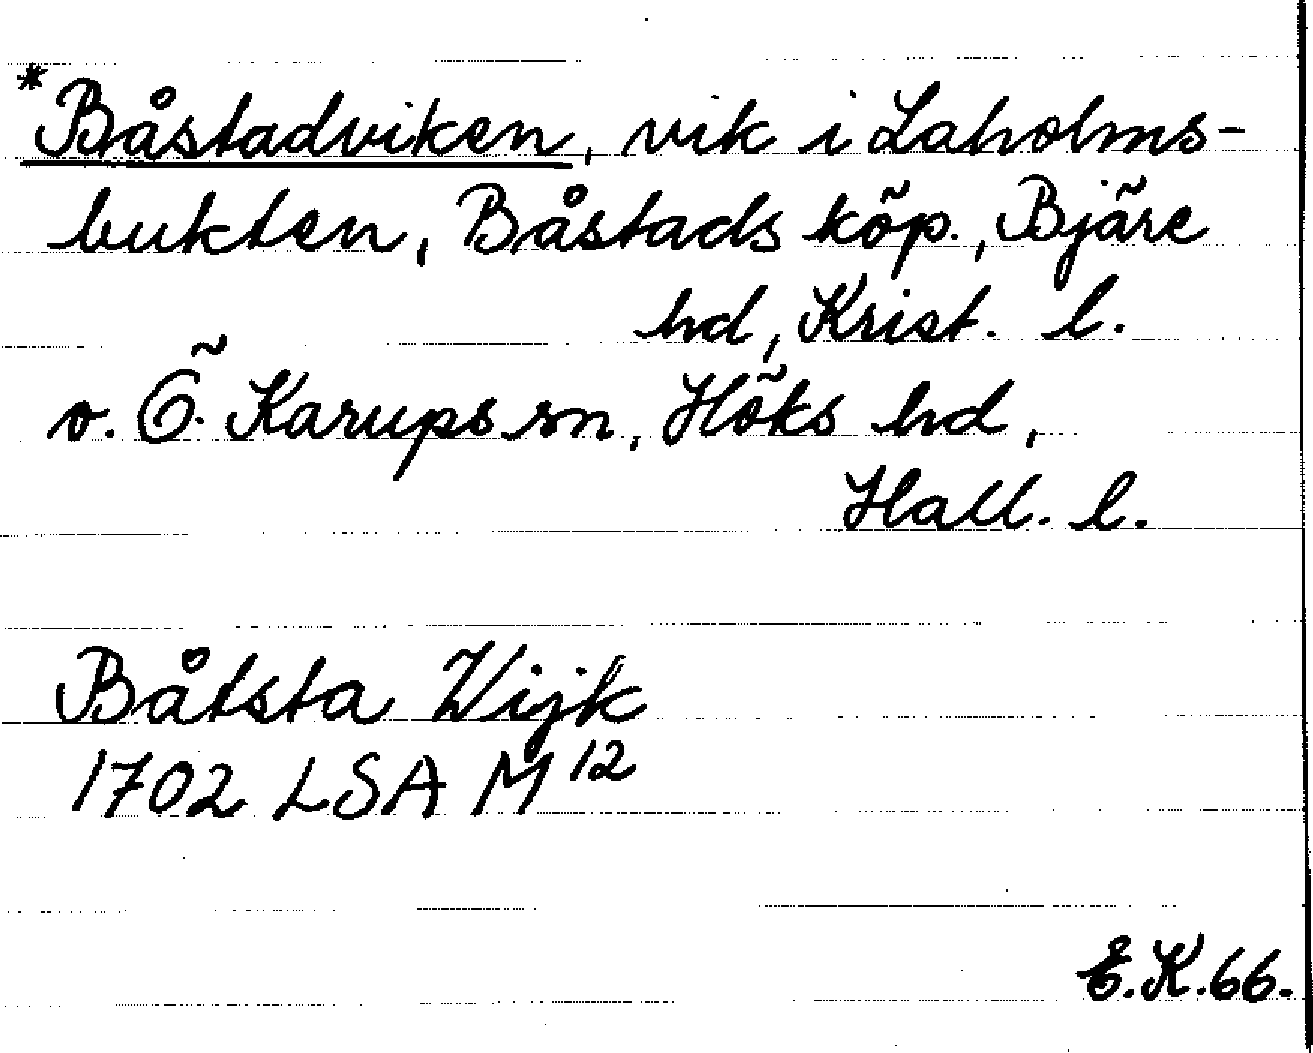 *Båstadviken, vik i Laholms-
bukten, Båstads köp., Bjäre
hd, Krist. l.
o. Ö. Karups sn, Höks hd,
Hall. l.
Båtsta Wijk
1702 LSA M12
E.K.66.